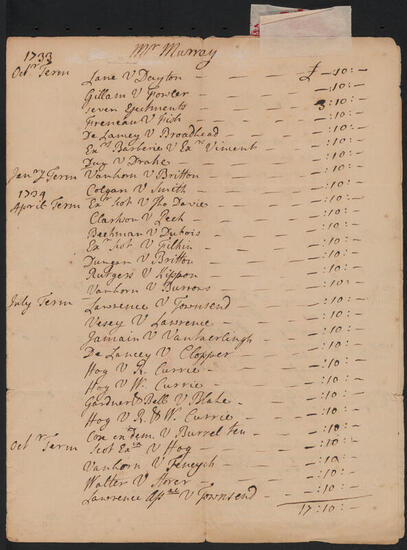 1733 Mr Murray
Octr Term Lane V Dayton — — — £ -:10:-
Gillam V Fowler — — — -:10:-
Seven Ejectments — — — 3:10:-
Freneau V Fish — — — -:10:-
De Lancy V Broadhead — — -:10:-
Exrs Barberie V Exrs Vincent — -:10:-
Duy V Drake — — — -:10:-
Janry Term Vanhorn V Britton — — — -:10:-
1734 Colgan V Smith — — — -:10:-
April Term Exr Scot V Davie — — — -:10:-
Clarkson V Peck — — — -:10:-
Beekman V Dubois — — — -:10:-
Exr Scot V Filkin — — — -:10:-
Dungan V Britton — — — -:10:-
Rutgers V Kippon — — — -:10:-
Vanhorn V Burrows — — — -:10:-
July Term Lawrence V Townsend — — -:10:-
Vesey V Lawrence — — — -:10:-
Jamain V — — -:10:-
De Lancey V Clopper — — -:10:-
Hog V R. Currie — — — -:10:-
Hog V W. Currie — — — -:10:-
Gardner & Bell V Blake — — -:10:-
Hog V R. & W. Currie — — -:10:-
Cox in dem. V Burrel ten — — -:10:-
Octr Term Scot Exr V Hog — — — -:10:-
Vanhorn V Feneych — — — -:10:-
Walter V Storer — — — -:10:-
Lawrence V Townsend — — -:10:-
17:10:-